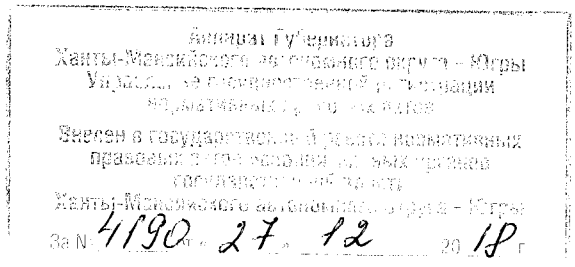 Аппарат Губернатора
Ханты-Мансийского автономного округа – Югры
Управление государственной регистрации
нормативных правовых актов
Внесен в государственный реестр нормативных
правовых актов исполнительных органов
государственной власти
Ханты-Мансийского автономного округа – Югры
За № 4190 от « 27 » 12 20 18 г